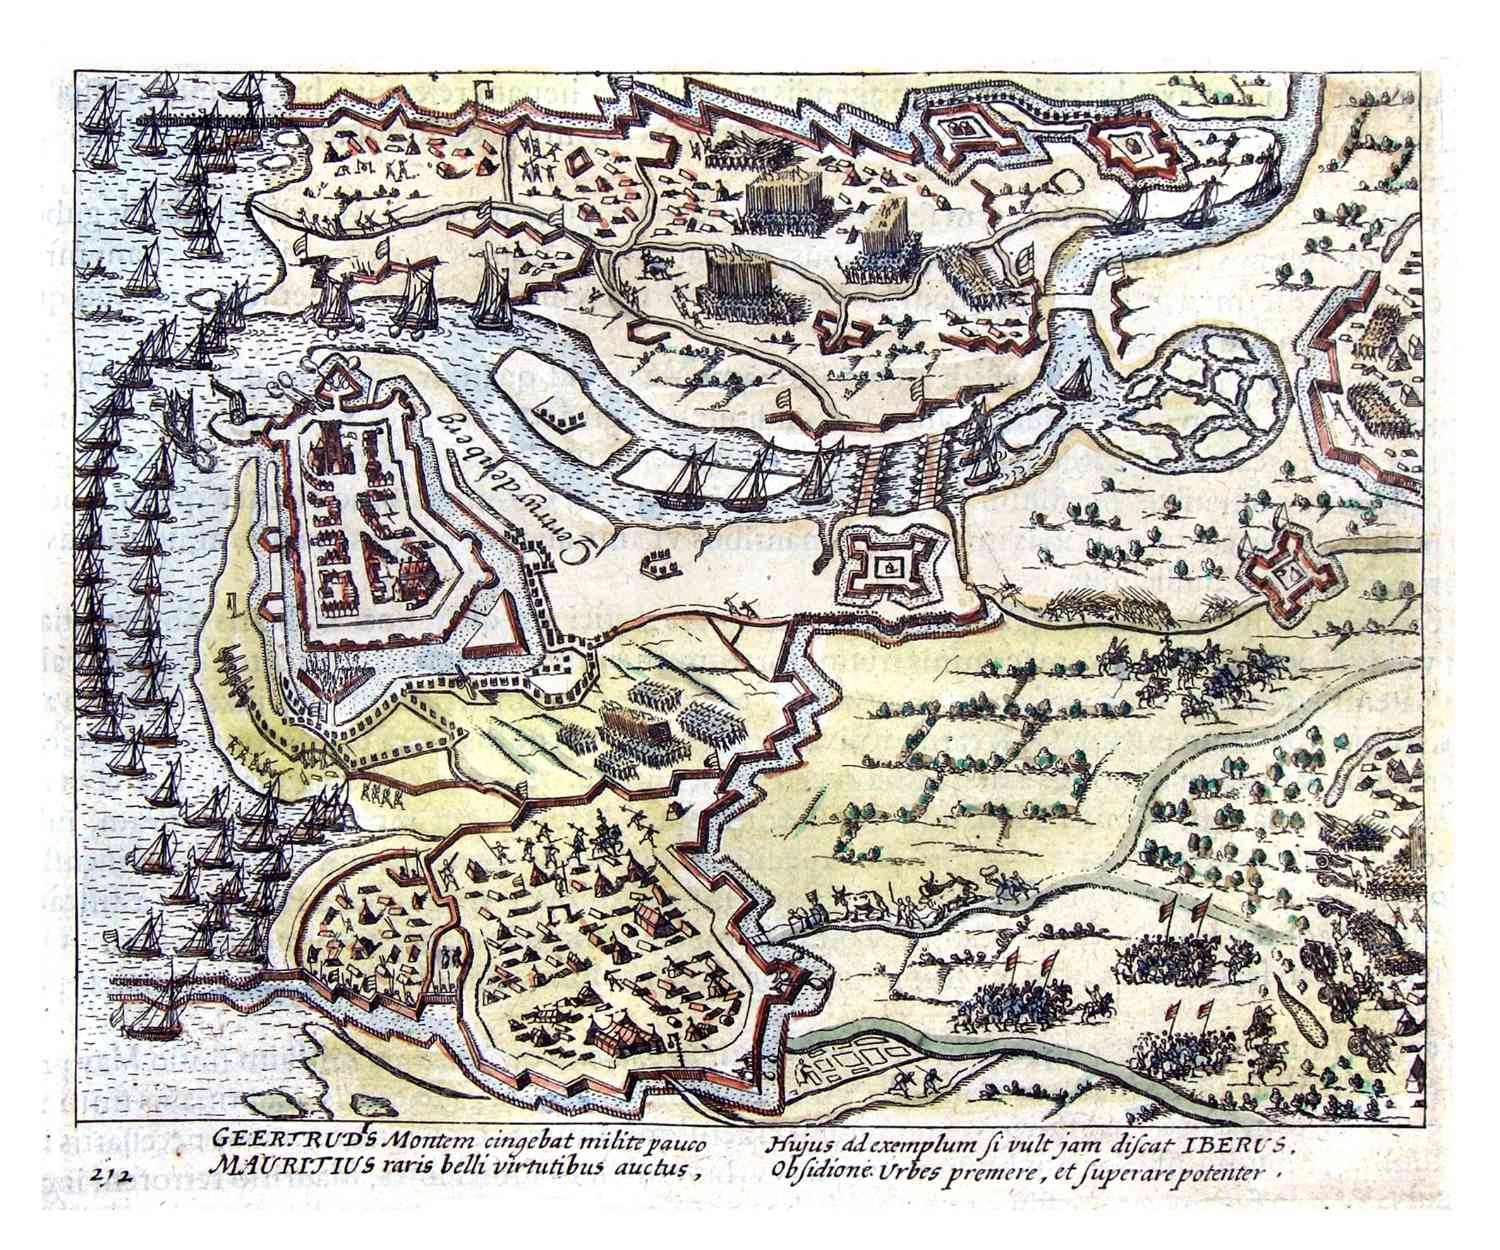 Geertruydenberg
GEERTRUDIS Montem cingebat milite pauco
MAURITIUS raris belli virtutibus auctus,
Hujus ad exemplum si vult jam discat IBERUS.
Obsidione Urbes premere, et superare potenter.
212